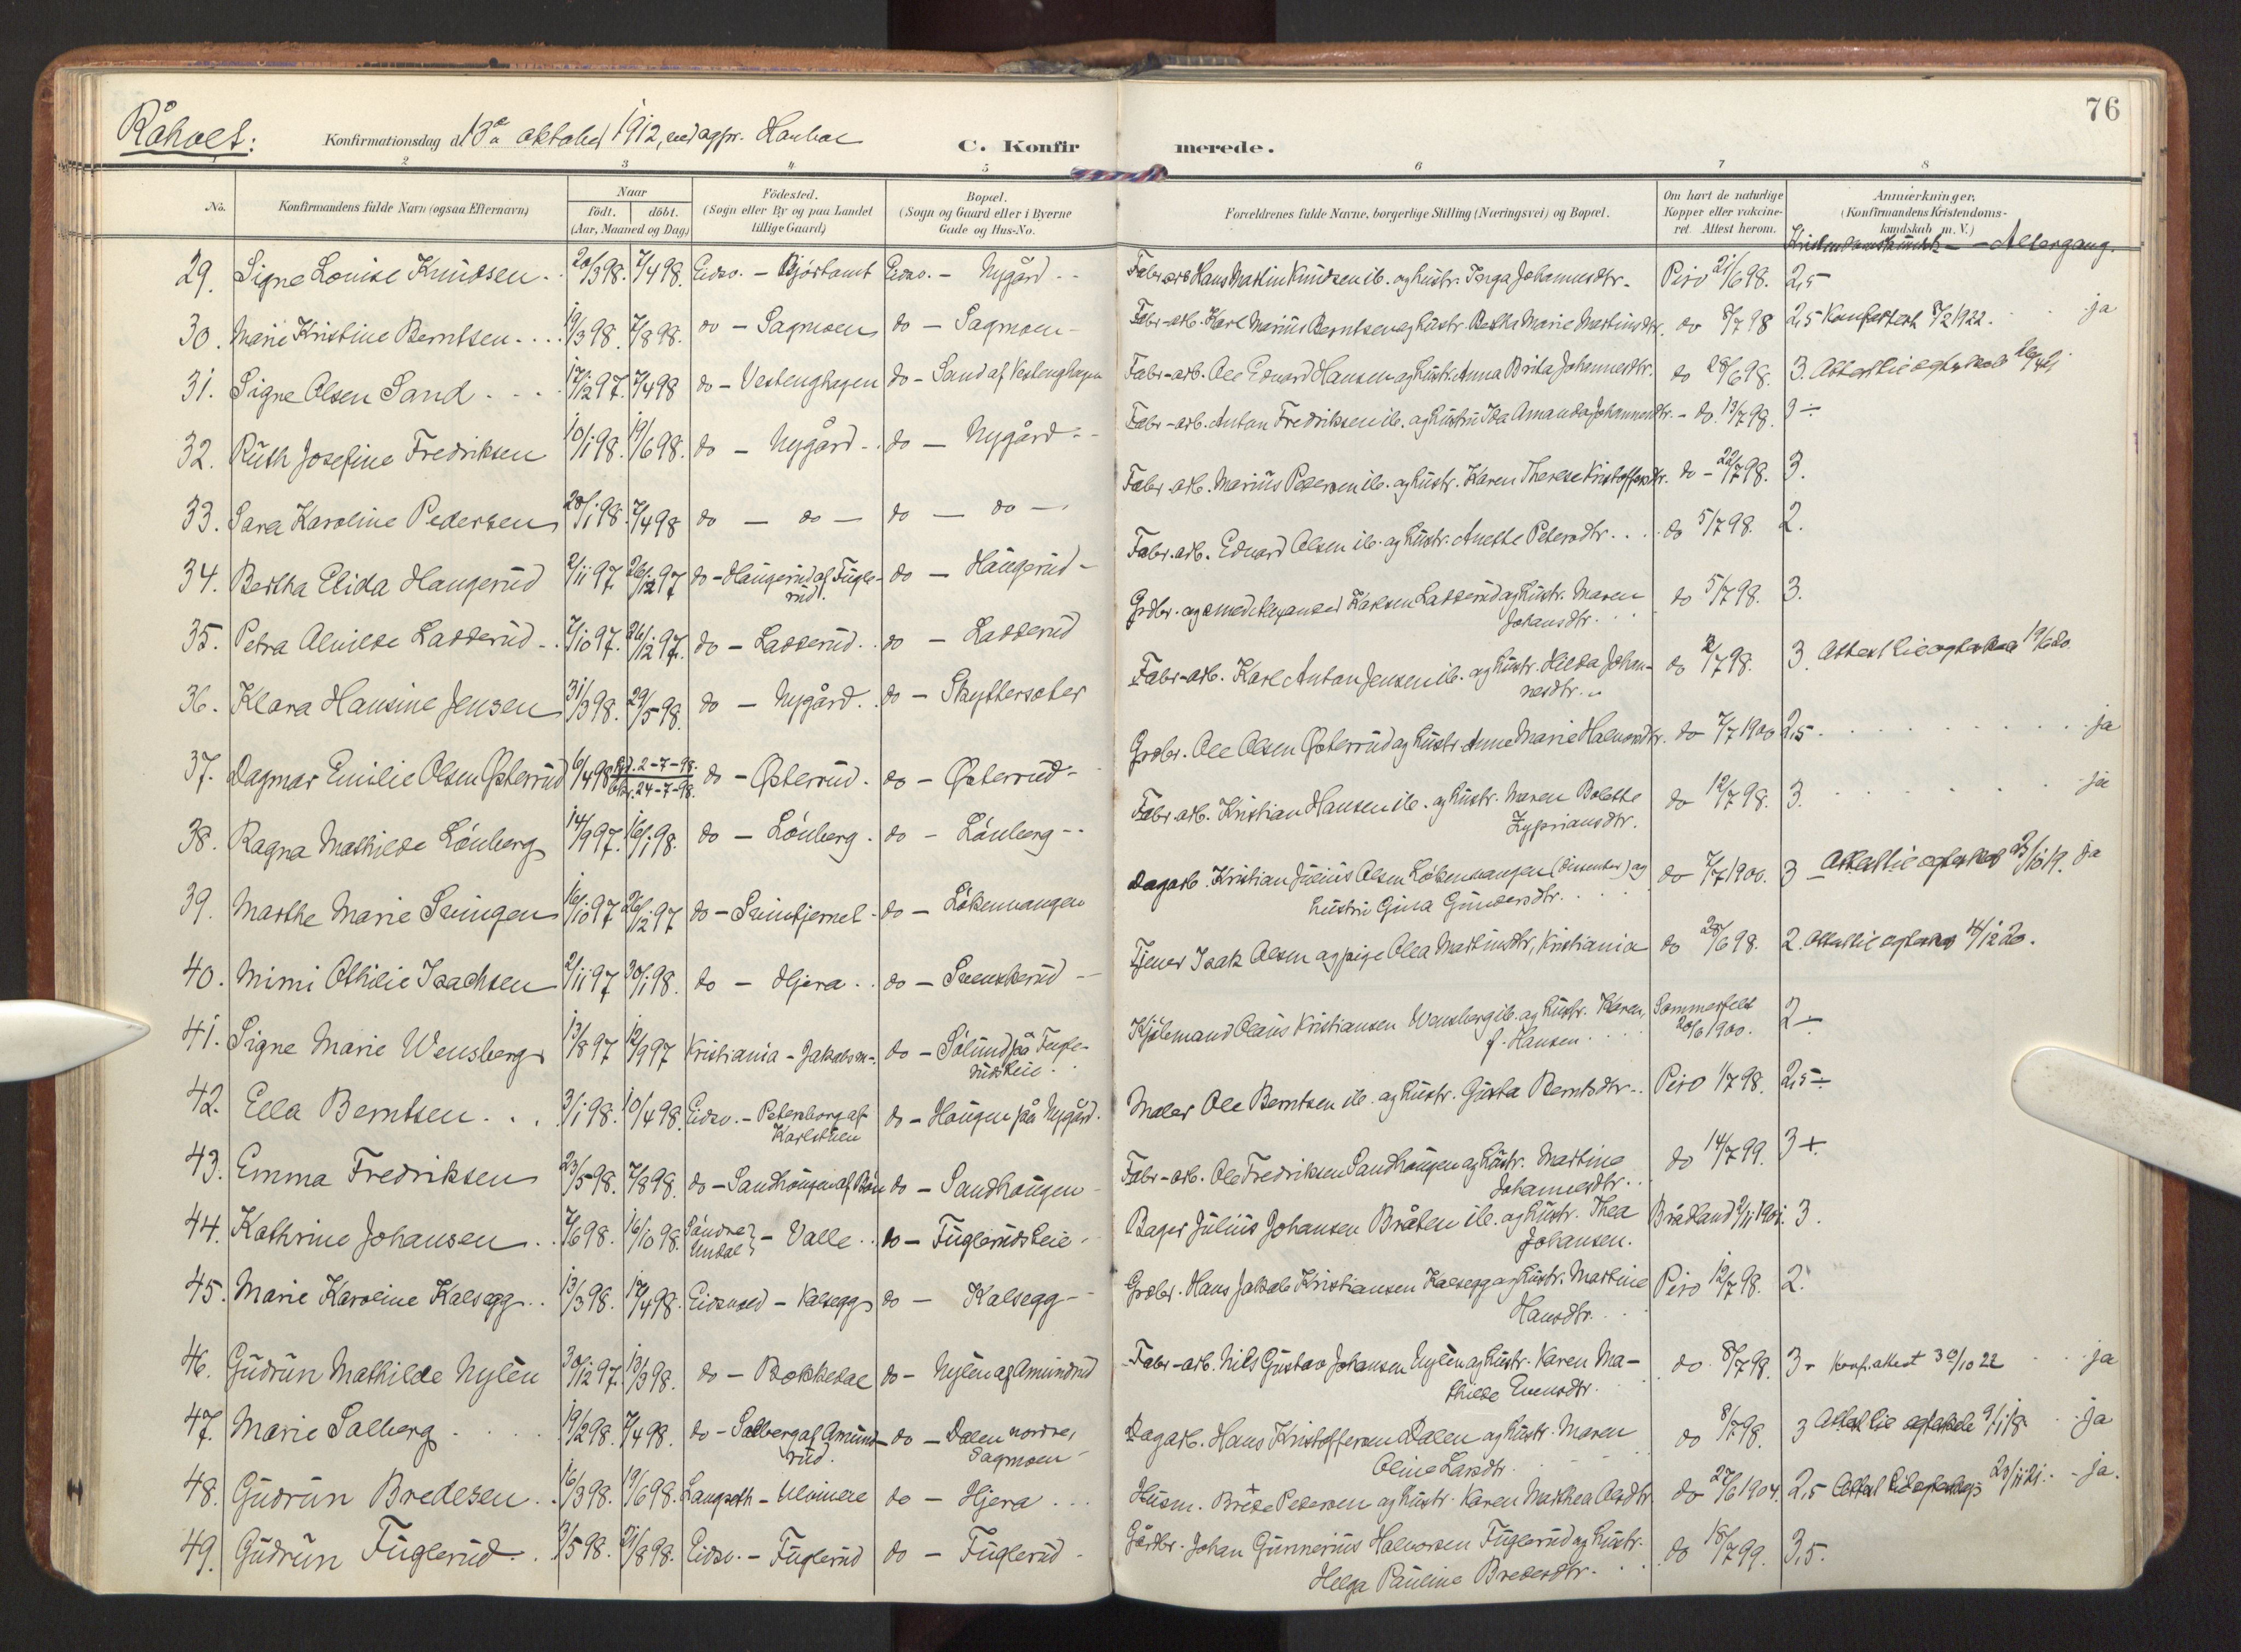 76
Råholt: Konfirmationsdag d. 13de oktober 1912, ved sogpr. Hauboe
C. Konfirmerede.
1 2 3 4 5 6 7 8
No. Konfirmandens fulde Navn (ogsaa Efternavn) Naar födt. döbt. (Aar, Maaned og Dag) Födested. (Sogn eller By og paa Landet tillige Gaard) Bopæl. (Sogn og Gaard eller i Byerne Gade og Hus-No.) Forældrenes fulde Navne, borgerlige Stilling (Næringsvei) og Bopæl. Om havt de naturlige Kopper eller vakcineret. Attest herom. Anmærkninger, (Konfirmandens Kristendomskundskab m. V.)
Altergang.
29. Signe Louise Knudsen 20/3 98. 7/4 98. Eidsv. - Eidsv. - Nygård Fabr.arb. Hans Martin Knudsen ib. og hustr. Inga Johannesdtr. Piro 21/6 98. 2,5
30. Marie Kristine Berntsen 19/3 98. 7/8 98. do - Sagmoen do - Sagmoen Fabr-arb. Karl Marius Berntsen og hustr. Berthe Marie Martinsdtr. do 8/7 98 2,5 Konfattest 8/2 1922. ja
31. Signe Olsen Sand 17/12 97. 7/4 98 do - Vestenghagen do - Sand af Vestenghagen Fabr-arb. Ole Edvard Hansen og hustr. Anna Brita Johannesdtr. do 28/6 98. 3. Attest til egteskab
32. Ruth Josefine Fredriksen 10/1 98. 19/6 98. do - Nygård do - Nygård Fabr-arb. Anton Fredriksen ib. og hustru Ida Amanda Johannesdtr. - do. 13/7 98. 3 ÷
33. Sara Karoline Pedersen 28/1 98. 7/4 98 do - do - do - do - Fabr-arb. Marius Pedersen ib. og hustr. Karen Therese Kristoffersdtr. do - 22/7 98. 3.
34. Bertha Elida Haugerud 2/11 97. 26/12 97 do - Haugerud af Fuglerud. do - Haugerud Fabr.arb. Edvard Olsen ib. og hustr. Anette Petersdtr. do 5/7 98. 2.
35. Petra Alvilde Ladderud 7/10 97. 26/12 97. do - Ladderud. do - Ladderud Grdbr. og smed Alexander Karlsen Ladderud og hustr. Maren Johansdtr. do 5/7 98. 3.
36. Klara Hansine Jensen 31/3 98. 29/5 98. do - Nygård. do - Skytterseter Fabr-arb. Karl Anton Jensen ib. og hustr. Hilda Johannesdtr. do 2/7 98. 3. Attest til egteskab 19/6 20.
37. Dagmar Emilie Olsen Østerrud 6/4 98 Hjd. 2-7-98. 24-7-98. do - Østerrud. do - Østerrud Grdbr. Ole Olsen Østerrud og hustr. Anne Marie Halvorsdtr. do 7/7 1900 2,5 ja
38. Ragna Mathilde Lönberg 14/9 97. 16/1 98. do - Lönberg. do - Lönberg Fabr.arb. Kristian Hansen ib. og hustr. Maren Bolette Zypriansdtr. do 12/7 98. 3. ja
39. Marthe Marie Svingen 16/10 97 26/12 97 do - Svintjernet do - Løkenvangen Dagarb. Kristian Julius Olsen Løkenvangen (dissenter) og hustru Gina Gundersdtr. do 7/7 1900. 3 Attest til egteskab 23/10 19. ja
40. Mimi Othilie Isachsen 2/11 97 30/1 98. do - Hjera do - Svenskerud Tjener Isak Olsen og pige Olea Martinsdtr, Kristiania do 28/6 98. 2. Attest til egteskab 14/12 20.
41. Signe Marie Wensberg 13/8 97 12/9 97 Kristiania - Jakobsm. do - Solund på Fuglerudseie. Kjølemand Olaus Kristiansen Wensberg ib. og hustr. Karen, f. Hansen. Sommerfelt 20/6 1900. 2 ÷
42. Ella Berntsen 3/1 98. 10/4 98. Eidsv. - Petersborg af do - Haugen på Nygård. Maler Ole Berntsen ib. og hustr. Gusta Berntsdtr. Piro 1/7 98. 2,5 ÷
43. Emma Fredriksen 23/5 98. 7/8 98. do - Sandhaugen af do - Sandhaugen Fabr-arb. Ole Fredriksen Sandhaugen og hustr. Martine Johannesdtr. do 14/7 99. 3 +
44. Kathrine Johansen 7/6 98. 16/10 98. Söndre Undal - Valle do - Fuglerudseie Bager Julius Johansen Bråten ib. og hustr. Thea Johansen. Brådland 2/11 1901. 3.
45. Marie Karoline Kalsegg 13/3 98. 17/4 98. Eidsvold - Kalsegg do - Kalsegg Grdbr. Hans Jakob Kristiansen Kalsegg og hustr. Martine Hansdtr. Piro 12/7 98. 2.
46. Gudrun Mathilde Nylén 30/12 97. 13/3 98. do - Bokkedal do - Nylén af Amundrud Fabr-arb. Nils Gustav Johansen Nylén og hustr. Karen Mathilde Evensdtr. do 8/7 98. 3- Konf.attest 30/10 22 ja
47. Marie Solberg 19/2 98. 7/4 98. do - Solberg af Amundrud. do - Dalen nordre, Sagmoen Dagarb. Hans Kristoffersen Dalen og hustr. Maren Oline Larsdtr. do 8/7 98. 3 Attest til egteskab 9/1 18. ja
48. Gudrun Bredesen 16/3 98. 19/6 98. Langseth - Ulvinelv do - Hjera Husm. Brede Pedersen og hustr. Karen Marthea Olesdtr. do 27/6 1904. 2,5 Attest til egteskap 20/11 21. ja.
49. Gudrun Fuglerud 3/5 98. 21/8 98. Eidsv. - Fuglerud do - Fuglerud Gårdbr. Johan Gunnerius Halvorsen Fuglerud og hustr. Helga Pauline Bredesdtr. do 18/7 99. 3,5.